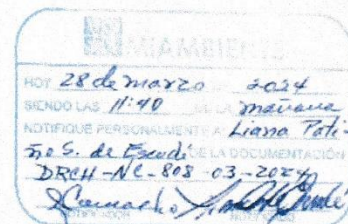 MIAMBIENTE
HOY 28 de marzo DE 2024
SIENDO LAS 11:40 DE LA mañana
NOTIFIQUE PERSONALMENTE A Liana Pati-
ño S. de Escudé DE LA DOCUMENTACIÓN
DRCH-NC-808-03-2024
NOTIFICADOR NOTIFICADO